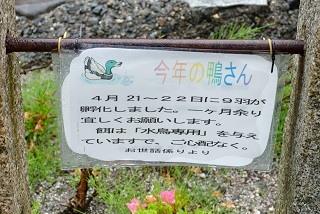 今年の鴨さん
４月２１～２２日に９羽が
孵化しました。一ヶ月余り
宜しくお願いします。
餌は「水鳥専用」を与え
ていますで、ご心配なく。
お世話係りより